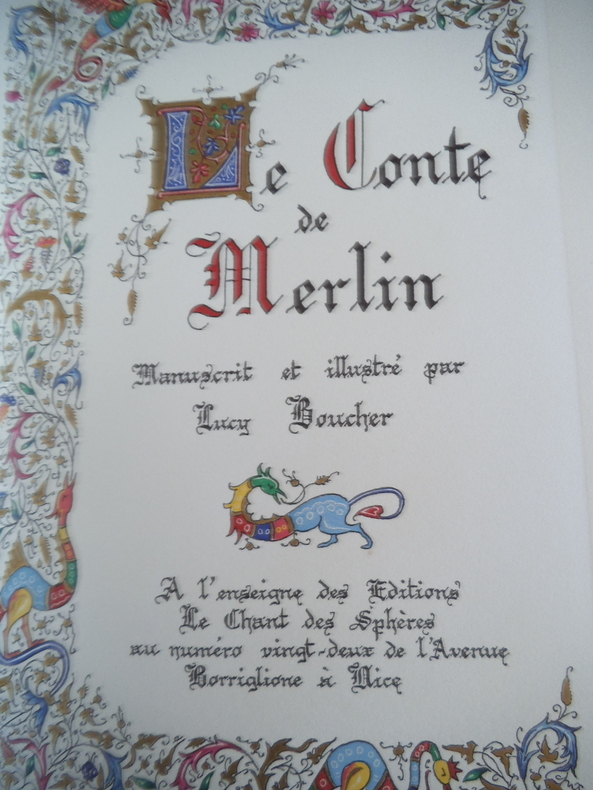 Le Conte
de
Merlin
Manuscrit et illustré par
Lucy Boucher
A l'enseigne des Editions
Le Chant des Sphères
au numéro vingt-deux de l'Avenue
Borriglione à Nice